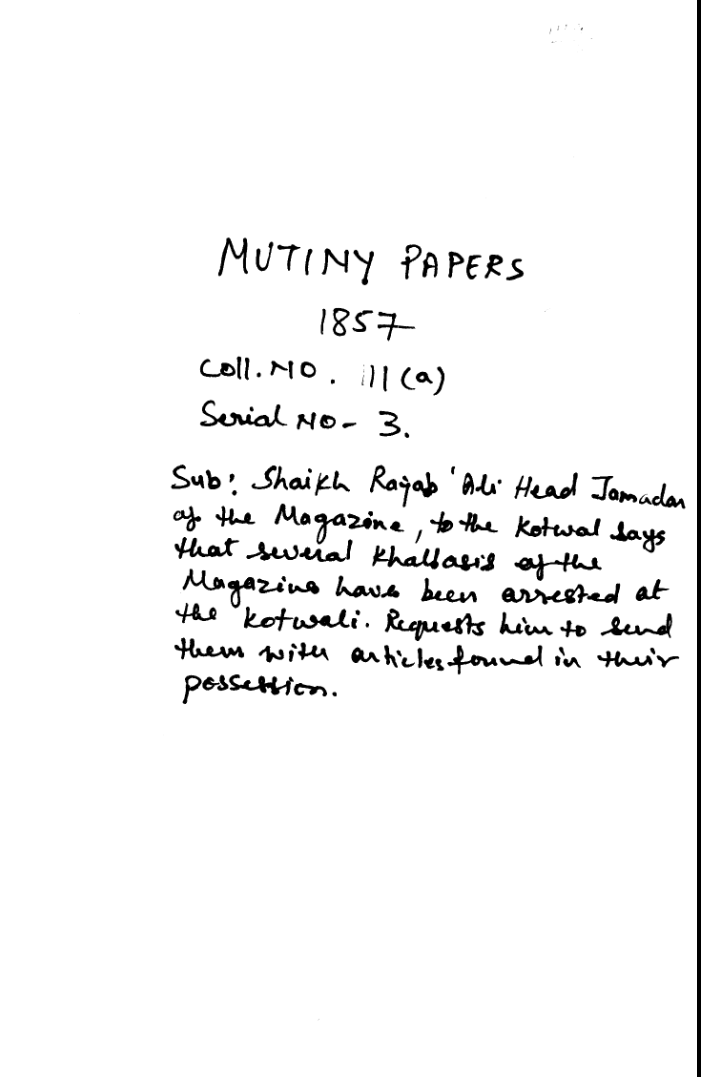 MUTINY PAPERS
1857
Coll. NO. 111 (a)
Serial NO - 3.
Sub: Shaikh Rajab 'Ali Head Jamadar
of the Magazine, to the Kotwal says
that several Khallasis of the
Magazine have been arrested at
the Kotwali. Requests him to send
them with articles found in their
possession.